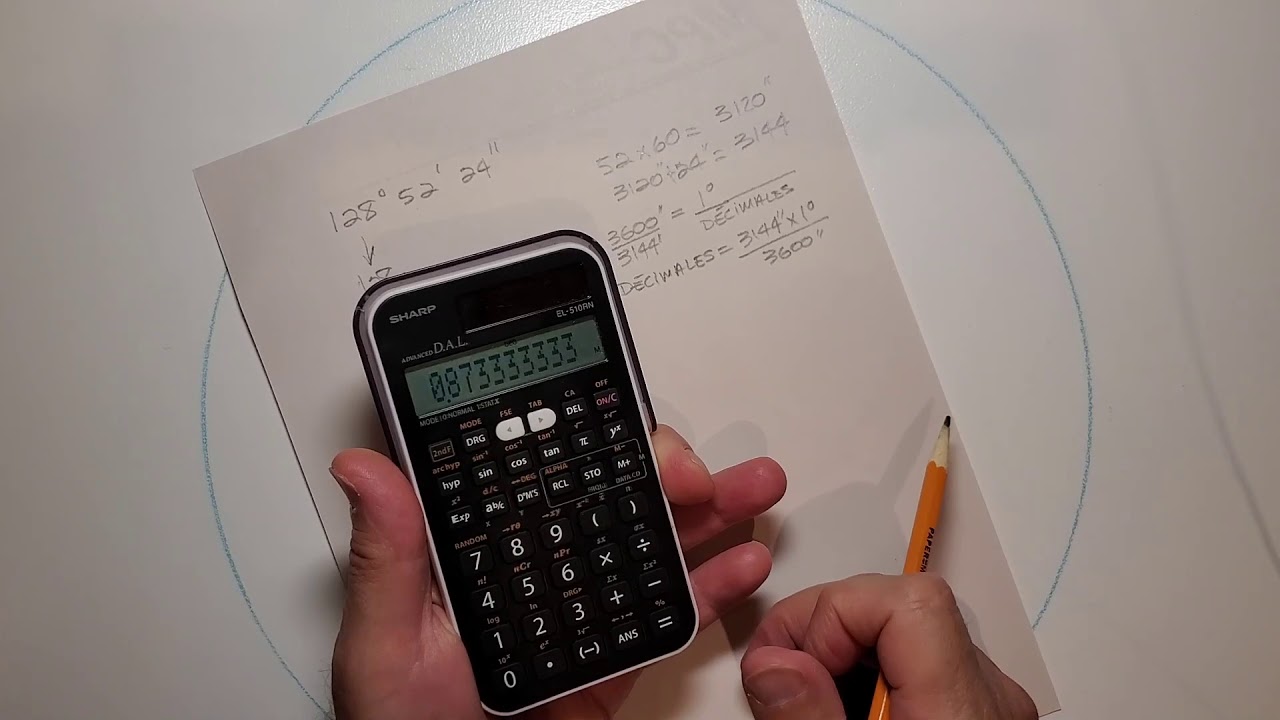 128° 52' 24"
52 x 60 = 3120"
3120" + 24" = 3144
3600" / 3144" = 1° / DECIMALES
DECIMALES = 3144" x 1° / 3600"
SHARP
EL-510RN
ADVANCED D.A.L.
DEG
0.873333333
M
MODE: 0:NORMAL 1:STAT x
MODE FSE TAB CA OFF
2ndF DRG ◄ ► DEL ON/C
archyp sin⁻¹ cos⁻¹ tan⁻¹ √ x√
hyp sin cos tan π yˣ
x² d/c ↔DEG ALPHA M- M
Exp ab/c D°M'S RCL STO M+
DATA CD
RANDOM →rθ →xy
7 8 9 ( )
n! nCr nPr
4 5 6 × ÷
log ln DRG▸
1 2 3 + −
10ˣ eˣ ³√ %
0 • (−) ANS =
PAPERM